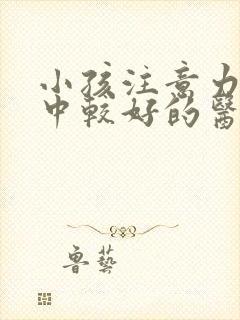 小孩注意力
中較好的醫
魯藝